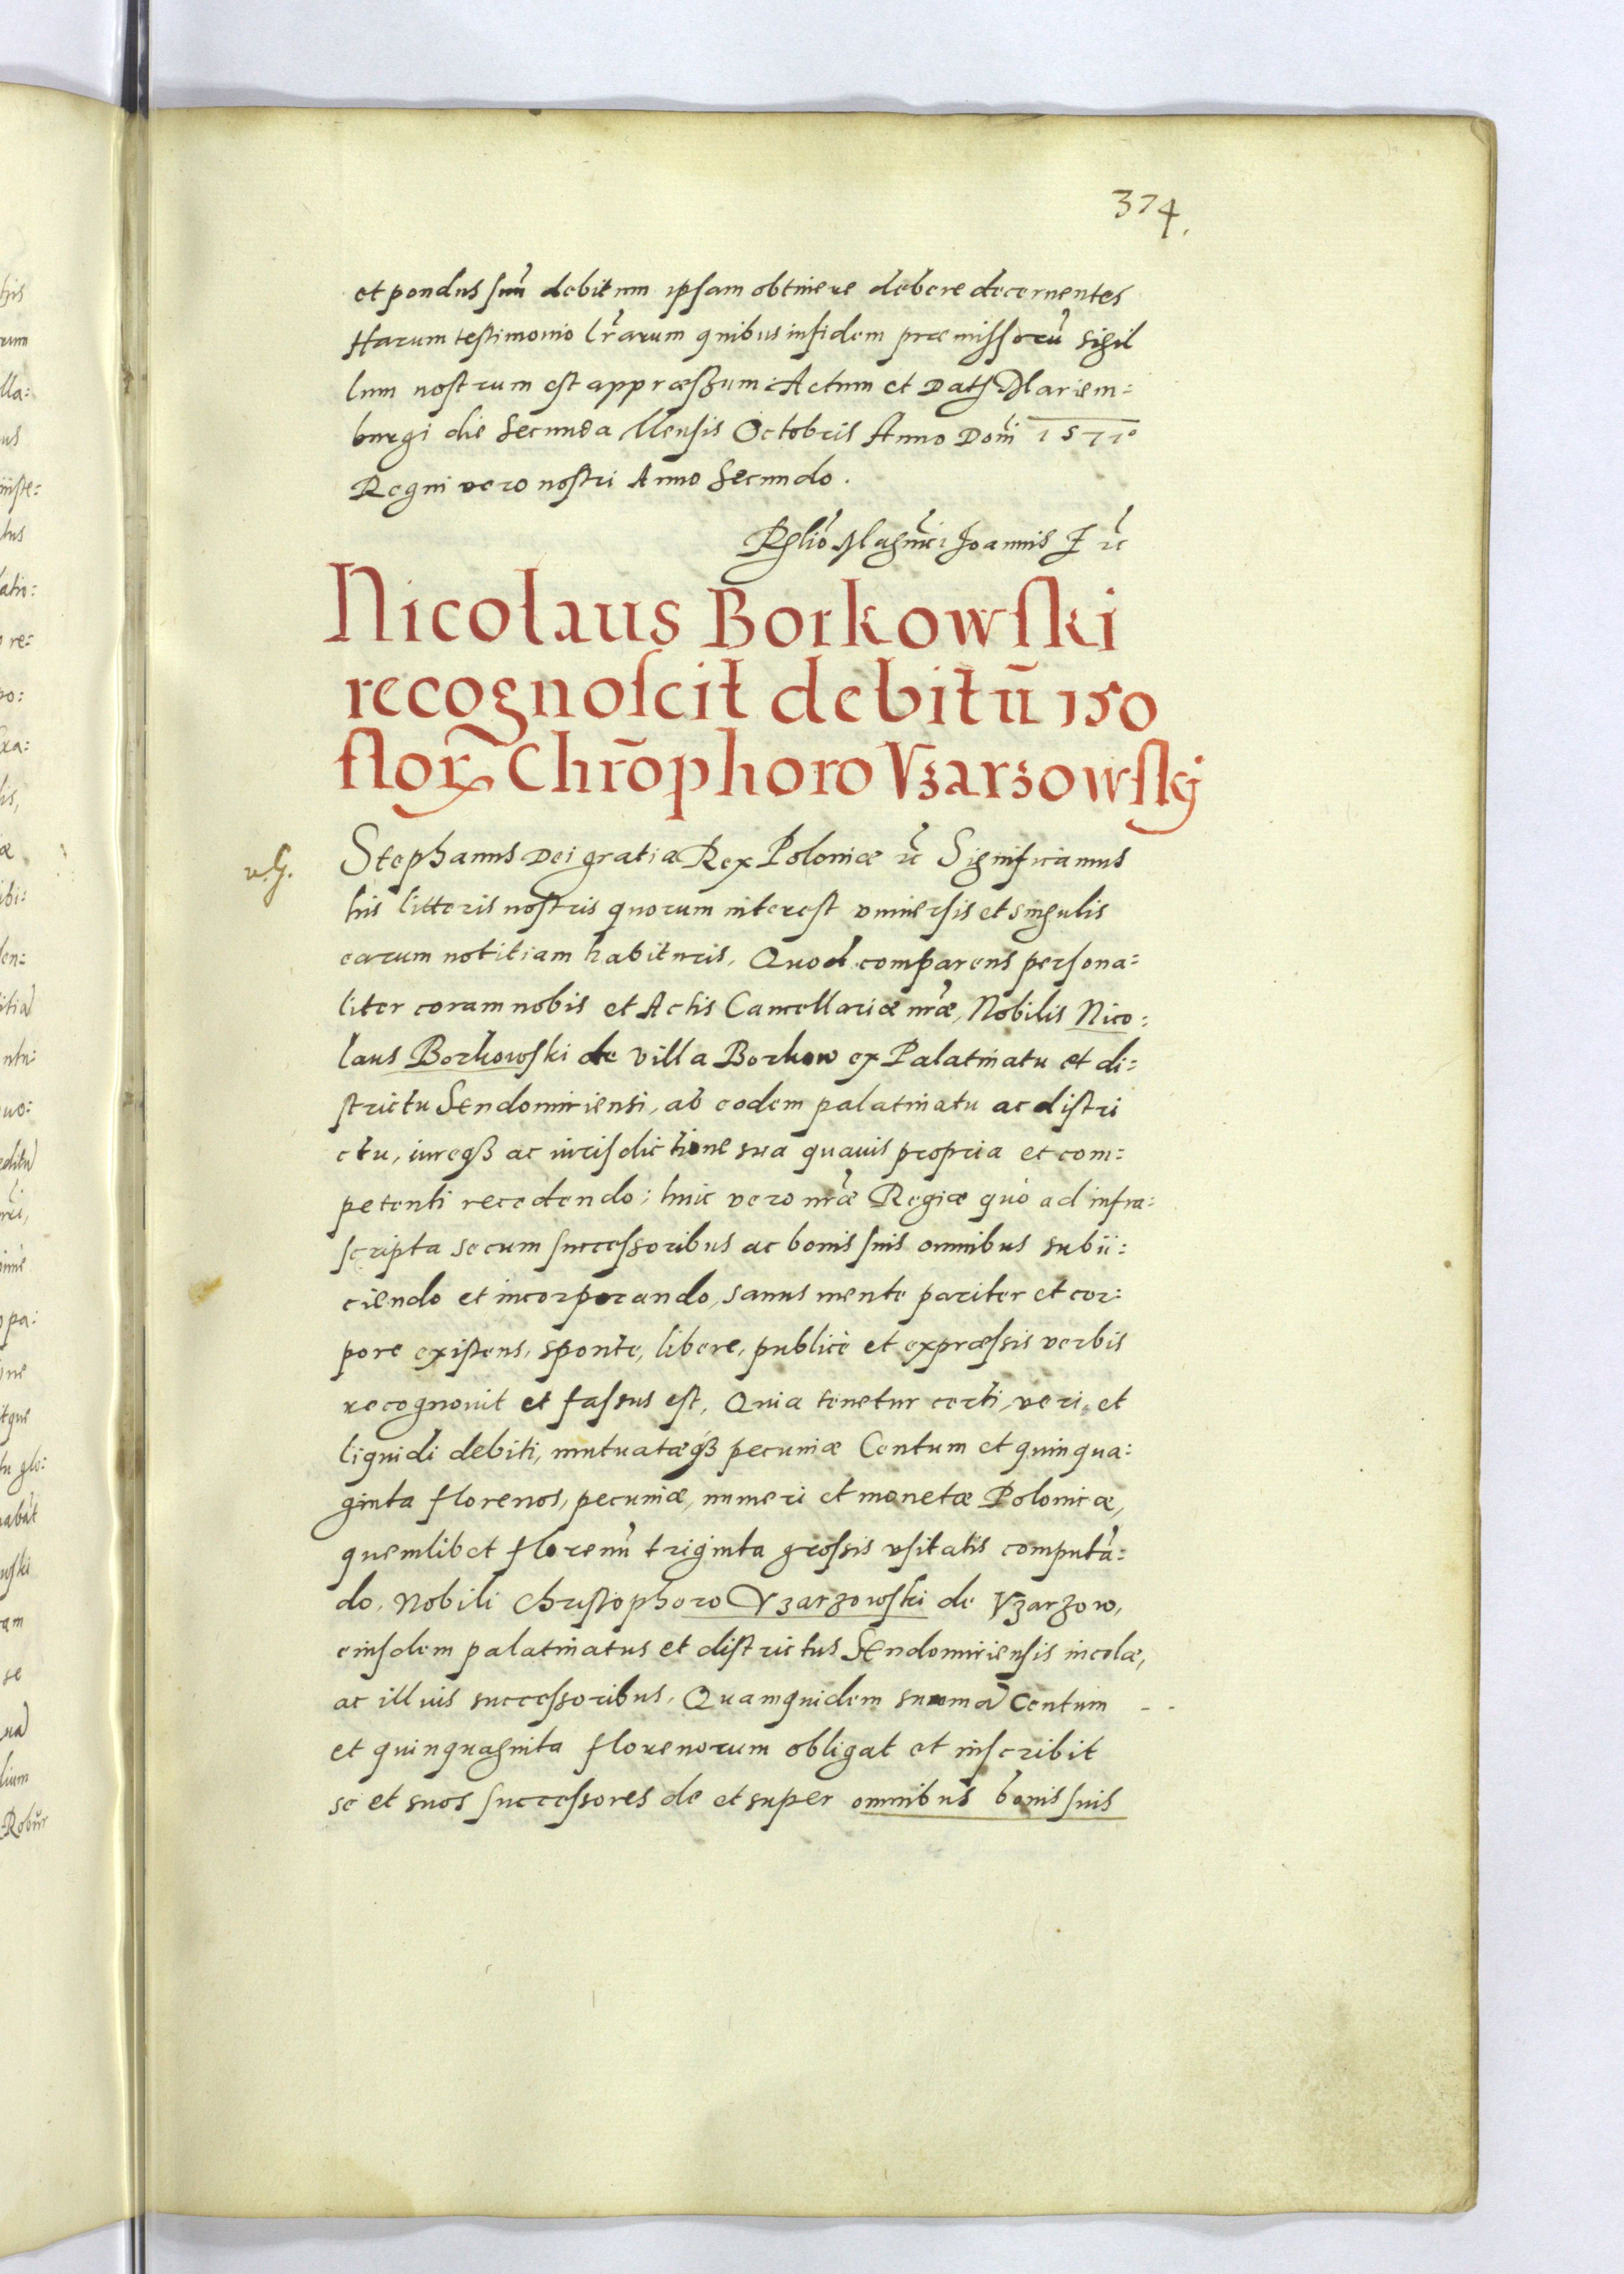 374.
et pondus suũ debitum ipsam obtinere debere decernentes
Harum testimonio lr̃arum quibus in fidem præmissorũ sigil
lum nostrum est appræssum. Actum et Dat Mariem:
burgi die Secunda Mensis Octobris Anno Dom̃i 1577º
Regni vero nostri Anno Secundo.
Rlio Mag͂nci Joannis
Nicolaus Borkowski
recognoscit debitũ 150
flor Chr̃ophoro Vzarzowskj
Stephanus Dei gratia Rex Poloniæ ꝛc̃ Significamus
his litteris nostris quorum interest vniuersis et singulis
earum notitiam habituris, Quod comparens persona:
liter coram nobis et Actis Cancellariæ nr̃æ, Nobilis Nico:
laus Borkowski de villa Borkow ex Palatinatu et di:
strictu Sendomiriensi, ab eodem palatinatu ac distri
ctu, iureqꝫ ac iurisdictione sua quauis propria et com:
petenti recedendo; huic vero nr̃æ Regiæ quò ad infra:
scripta se cum successoribus ac bonis suis omnibus subii:
ciendo et incorporando, sanus mente pariter et cor:
pore existens, sponte, libere, publicè et expræssis verbis
recognouit et fassus est, Quia tenetur certi, veri, et
liquidi debiti, mutuatæqꝫ pecuniæ Centum et quinqua:
ginta florenos, pecuniæ, numeri et monetæ Polonicæ,
quemlibet florenũ triginta grossis vsitatis computã:
do, Nobili Christophoro Vzarzowski de Vzarzow,
eiusdem palatinatus et districtus Sendomiriensis incolæ,
ac ill͂uis successoribus, Quamquidem summã Centum
et quinquaginta florenorum obligat et inscribit
se et suos successores de et super omnibus bonis suis